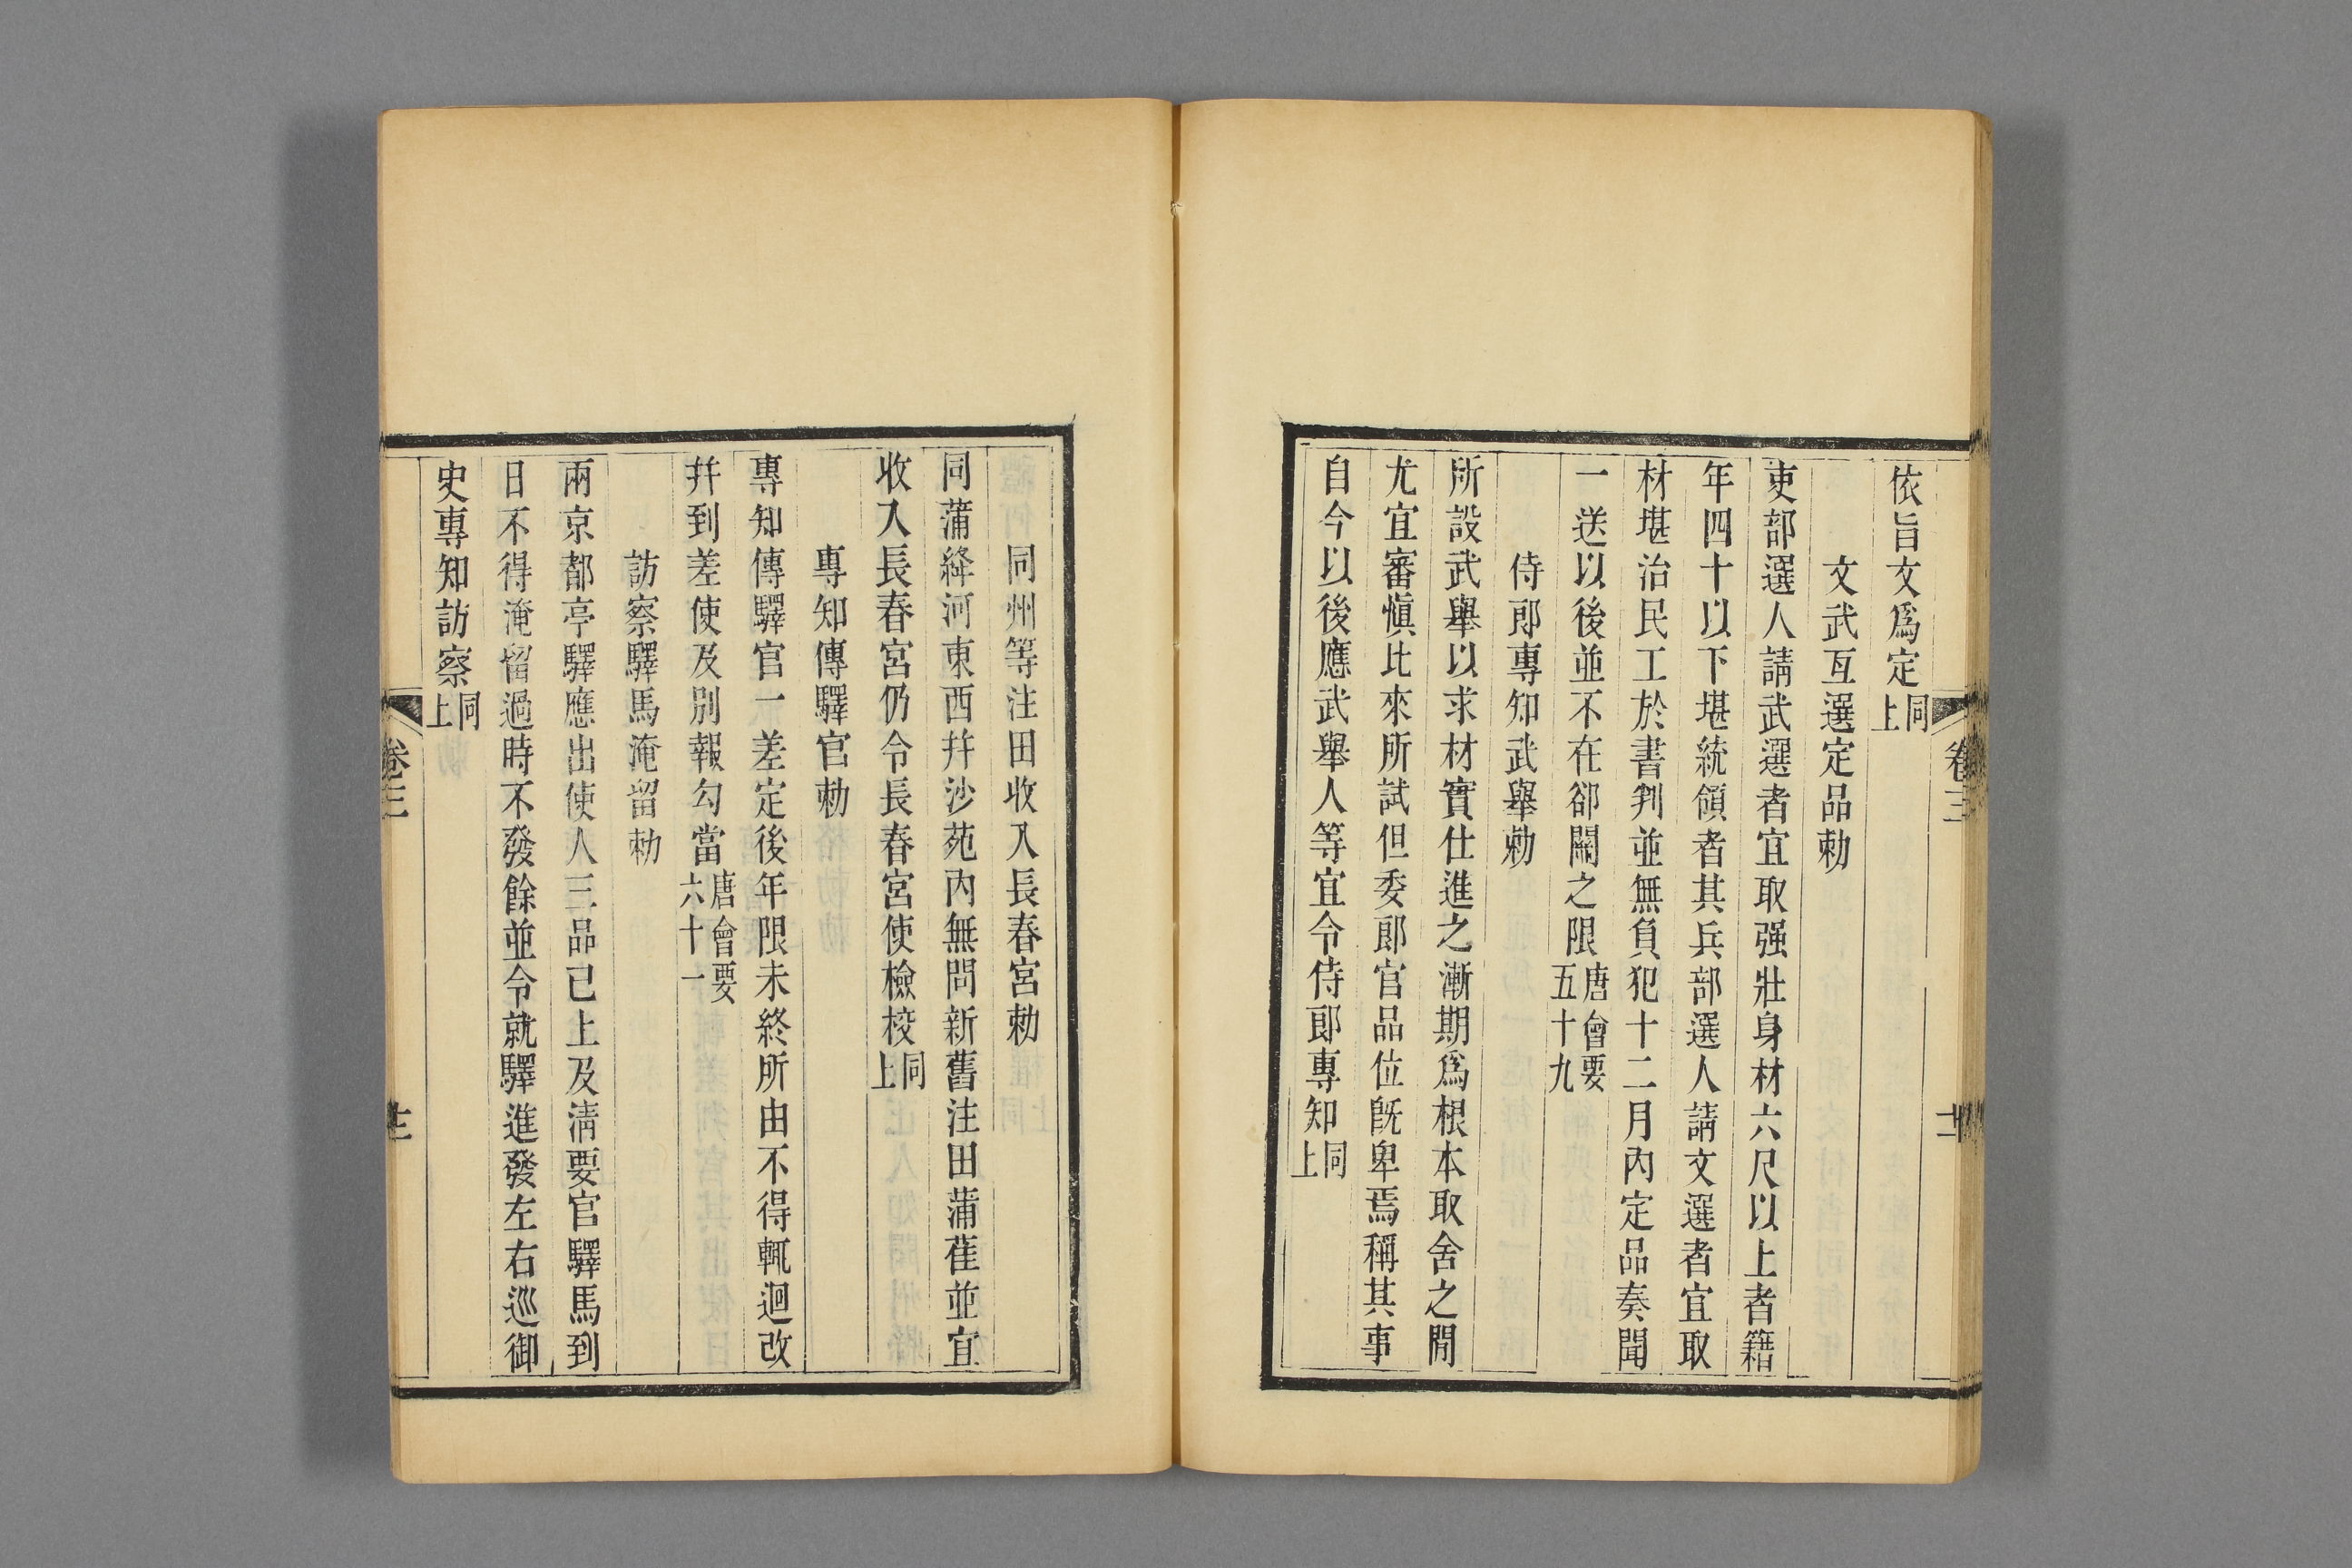 依旨文爲定同上
文武互選定品勅
吏部選人請武選者宜取强壯身材六尺以上者籍
年四十以下堪統領者其兵部選人請文選者宜取
材堪治民工於書判並無負犯十二月內定品奏聞
一送以後並不在卻關之限唐會要五十九
侍郎專知武舉勅
所設武舉以求材實仕進之漸期爲根本取舍之閒
尤宜審愼比來所試但委郎官品位旣卑焉稱其事
自今以後應武舉人等宜令侍郎專知同上
卷三
同州等注田收入長春宮勅
同蒲絳河東西幷沙苑內無問新舊注田蒲萑並宜
收入長春宮仍令長春宮使檢校同上
專知傳驛官勅
專知傳驛官一差定後年限未終所由不得輒迴改
幷到差使及別報勾當唐會要六十一
訪察驛馬淹留勅
兩京都亭驛應出使人三品已上及淸要官驛馬到
日不得淹留過時不發餘並令就驛進發左右巡御
史專知訪察同上
卷三